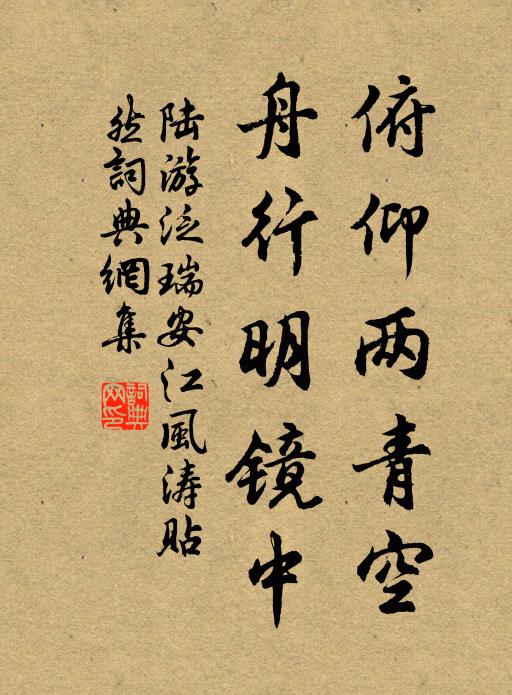 俯仰两青空
舟行明镜中
陆游泛瑞安江风涛贴
然词典网集
词典网印